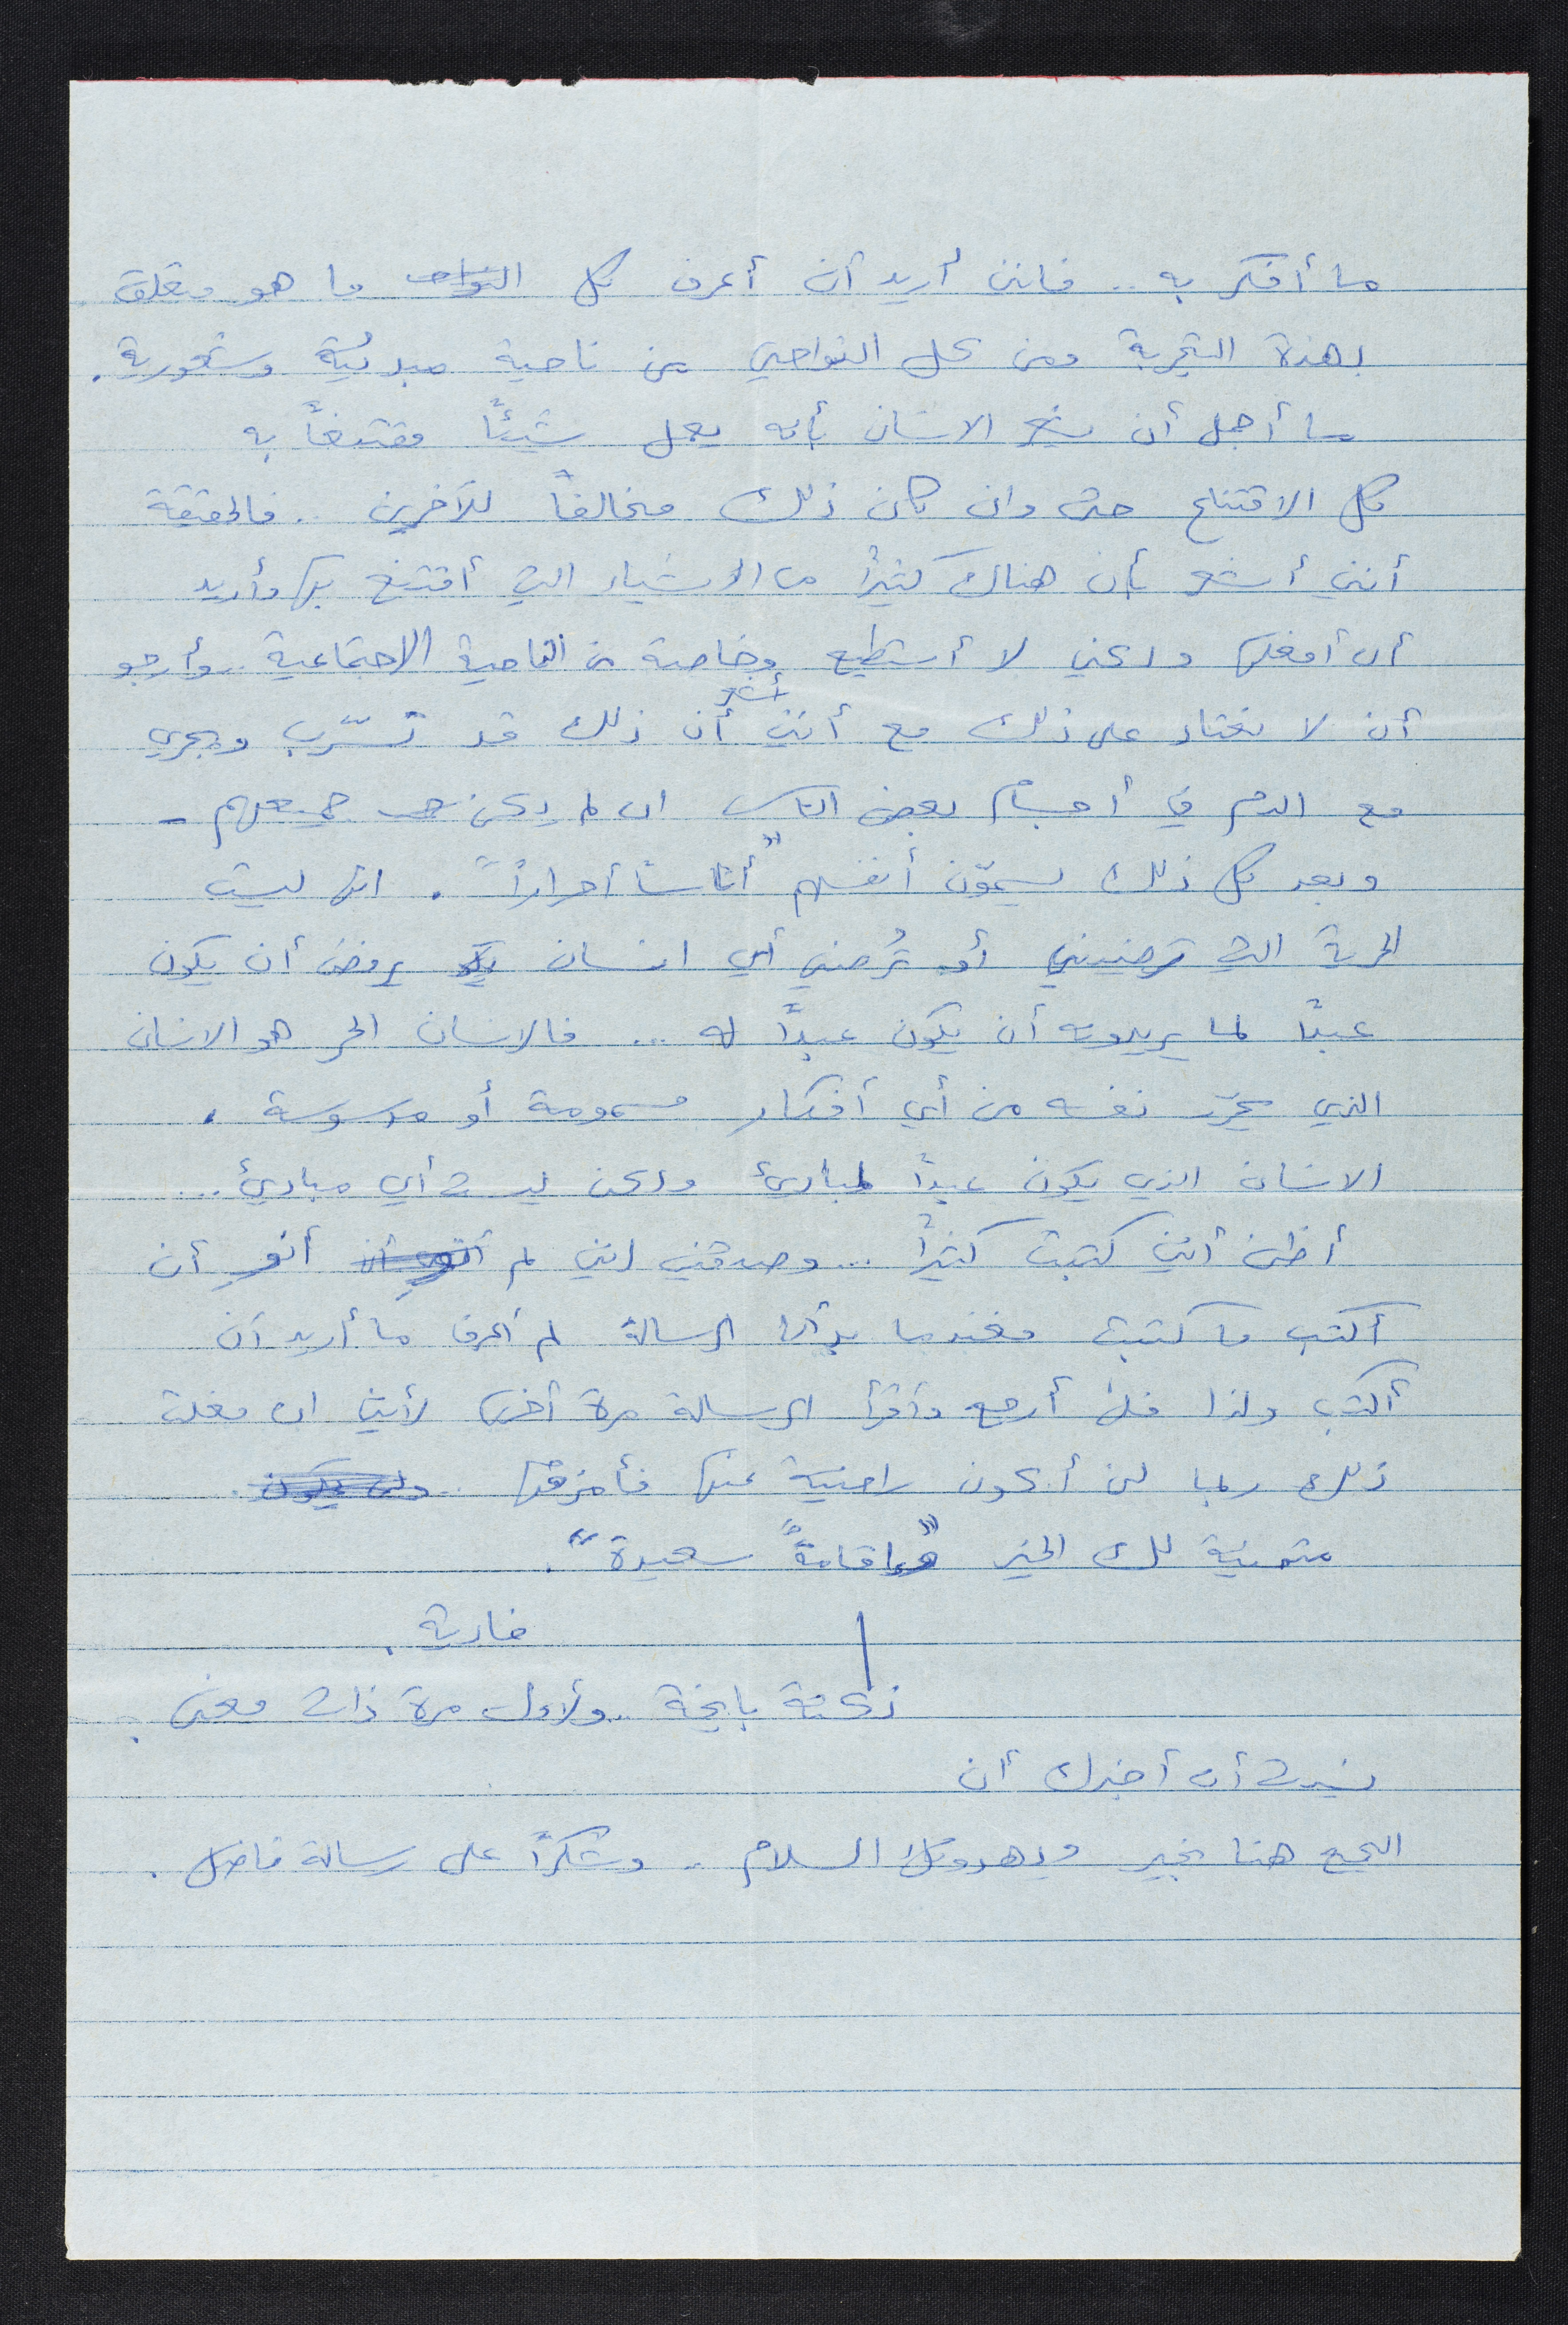 ما أفكر به .. فانني أريد أن أعرف كل النواحـ ما هو متعلق
بهذة التجربة ومن كل النواحي من ناحية مبدئية وشعورية.
ما أجمل أن يشعر الانسان بأنه يعمل شيئاً مقتنعاً به
كل الاقتناع حتى وان كان ذلك مخالفاً للآخرين .. فالحقيقة
أنني أشعر بأن هناك كثيراً من الأشياء التي أقتنع بها وأريد
أن أفعلها ولكني لا أستطيع وخاصة من الناحية الاجتماعية .. وأرجو
أن لا نعتاد على ذلك مع أنني أشعر أن ذلك قد تسرّب ويجري
مع الدم في أجسام بعض الناس ان لم يكن جميعهم -
وبعد كل ذلك يسمّون أنفسهم "أناساً أحراراً" . انها ليست
الحرية التي ترضيني أو تُرضي أي انسان يرفض أن يكون
عبداً لما يريدونه أن يكون عبداً له ... فالانسان الحر هو الانسان
الذي يحرّر نفسه من أي أفكار مسمومة أو مدسوسة .
الانسان الذي يكون عبداً لمبادئ ولكن ليس أي مبادئ ...
أظن أنني كتبت كثيراً ... وصدقني انني لم أنوِ أن
أكتب ما كتبت فعندما بدأت الرسالة لم أعرف ما أريد أن
أكتب ولذا فلن أرجع وأقرأ الرسالة مرة أخرى لأنني ان فعلت
ذلك ربما لن أكون راضية عنها فأمزقها .. ولن يكون .
متمنية لك الخير "واقامةً سعيدة" .
فادية .
نكتة بايخة .. ولأول مرة ذات معنى .
نسيت أن أخبرك أن
الجميع هنا بخير ويهدونك السلام .. وشكراً على رسالة فاضل .